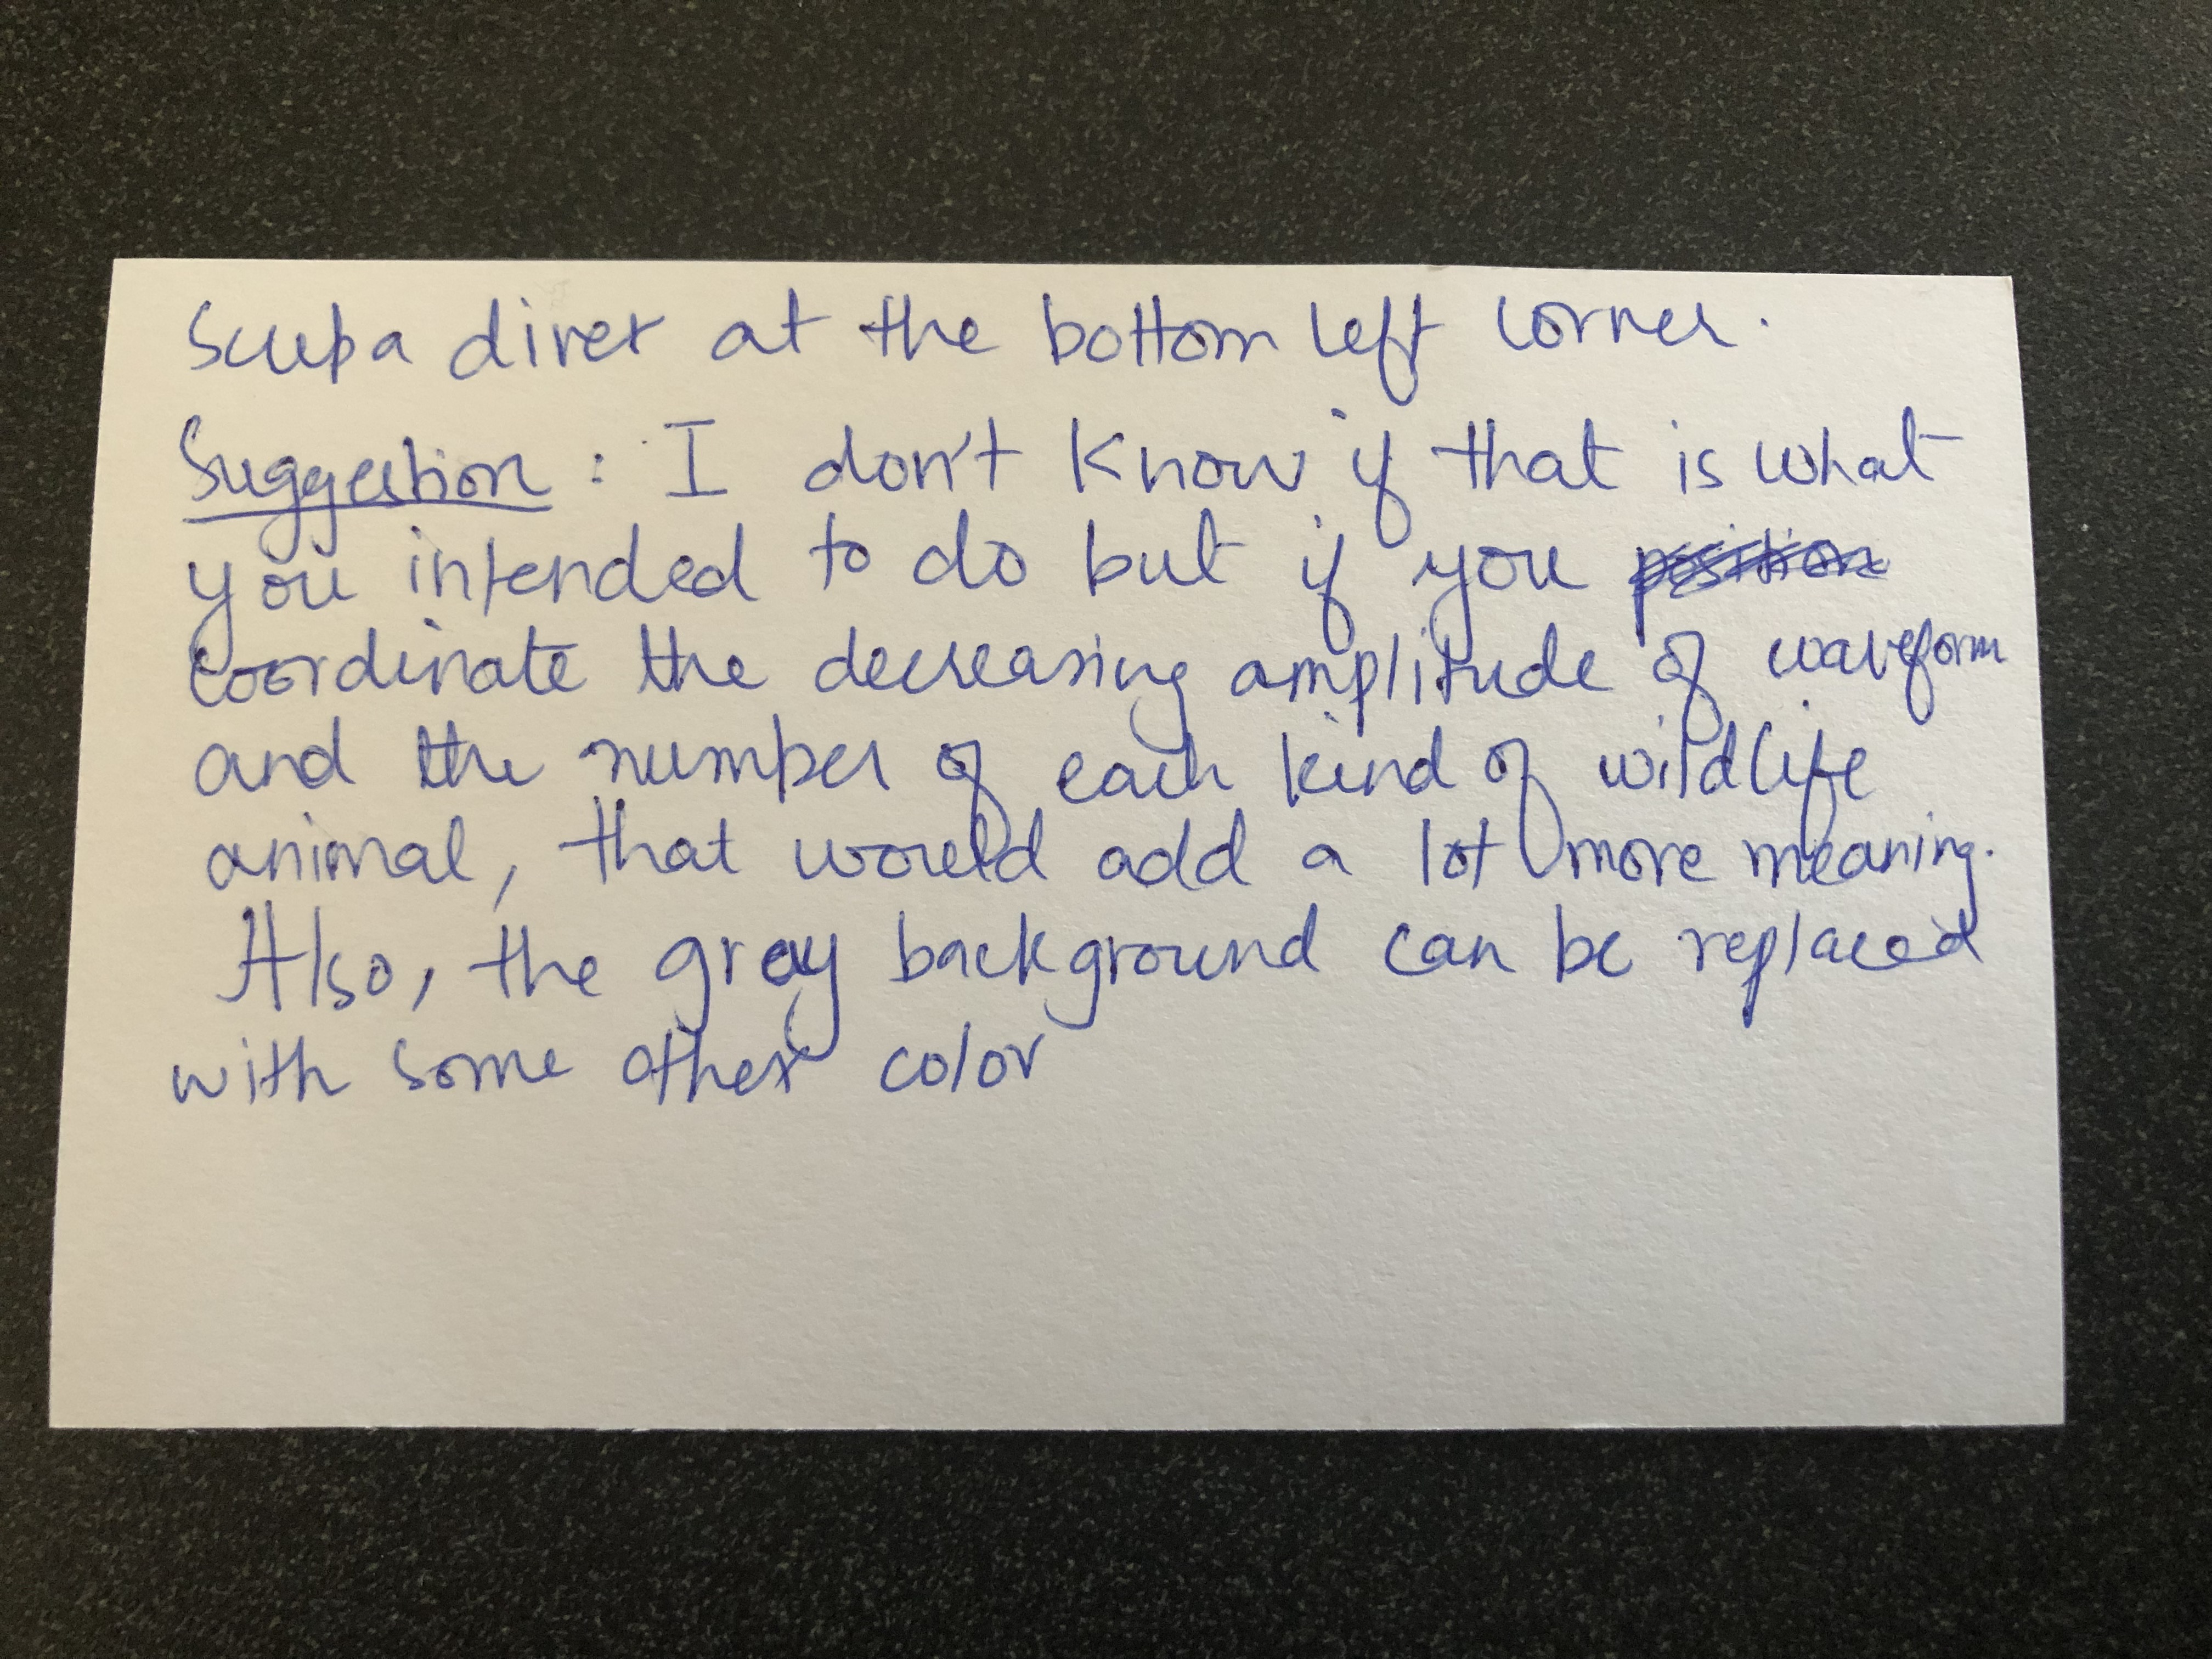 scuba diver at the bottom left corner.
Suggestion : I don't know if that is what
you intended to do but if you
coordinate the decreasing amplitude of waveform
and the number of each kind of wildlife
animal, that would add a lot more meaning.
Also, the gray background can be replaced
with some other color